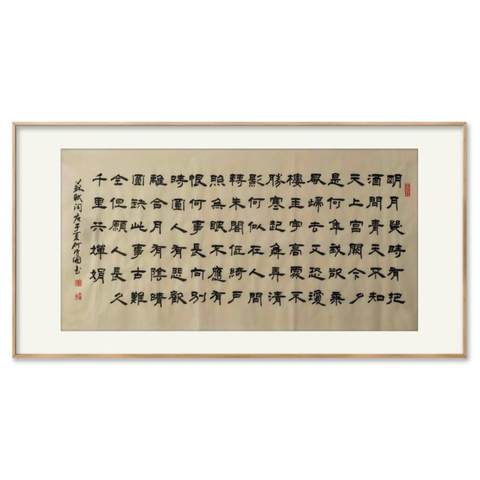 明月幾時有把
酒問青天不知
天上宮闕今夕
是何年我欲乘
風歸去又恐瓊
樓玉宇高處不
勝寒起舞弄清
影何似在人間
轉朱閣低綺戶
照無眠不應有
恨何事長向別
時圓人有悲歡
離合月有陰晴
圓缺此事古難
全但願人長久
千里共嬋娟
蘇軾词庚子夏書